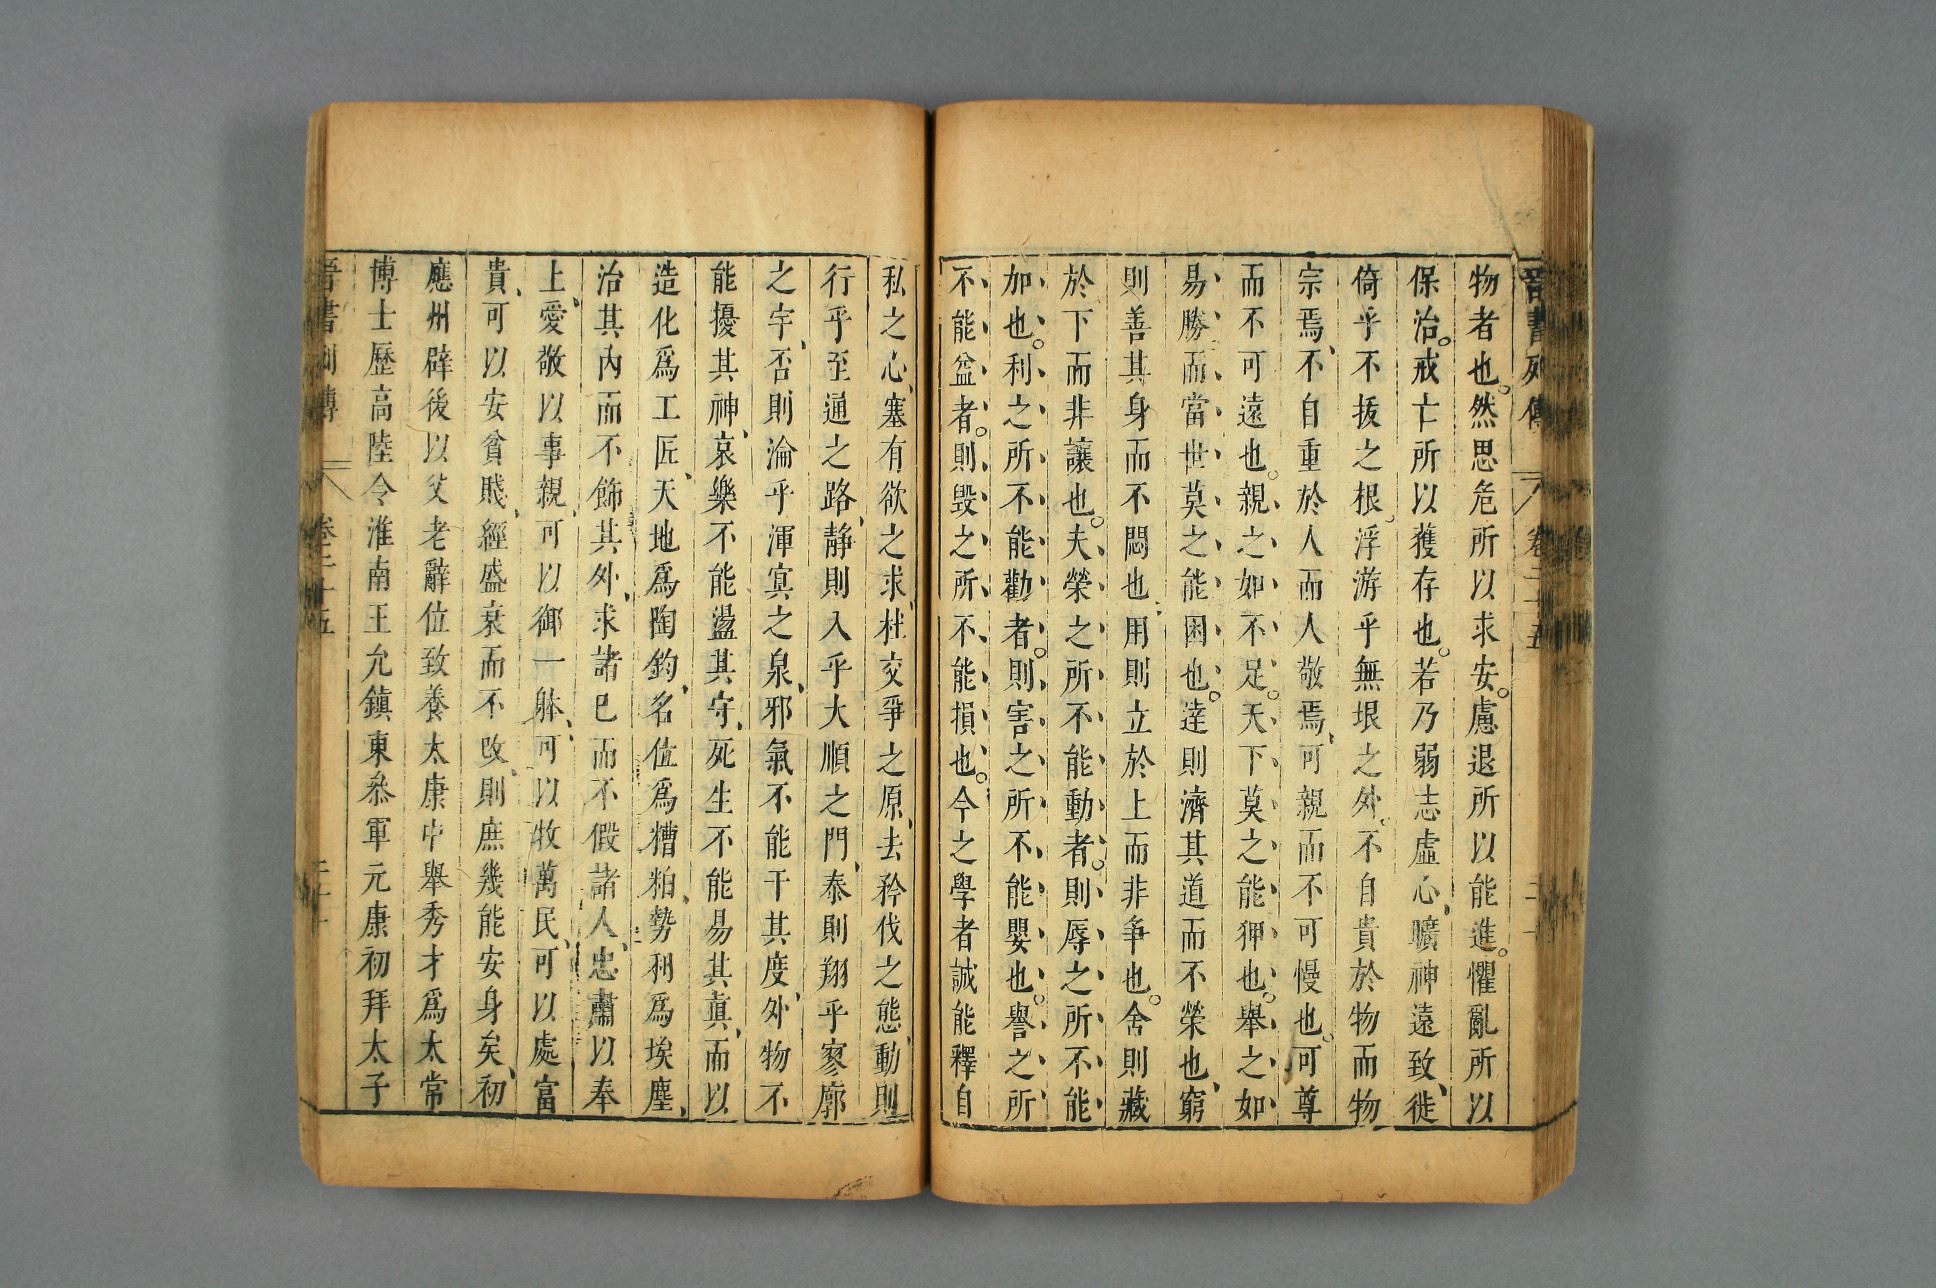 晉書列傳 卷二十五
物者也。然思危所以求安。慮退所以能進。懼亂所以
保治。戒亡所以獲存也。若乃弱志虛心、曠神遠致、徙
倚乎不拔之根、浮游乎無垠之外、不自貴於物而物
宗焉、不自重於人而人敬焉、可親而不可慢也。可尊
而不可遠也。親之如不足。天下莫之能狎也。舉之如
易勝、而當世莫之能困也。達則濟其道而不榮也、窮
則善其身而不悶也、用則立於上而非爭也。舍則藏
於下而非讓也。夫榮之所不能動者。則辱之所不能
加也。利之所不能勸者。則害之所不能嬰也。譽之所
不能益者。則毀之所不能損也。今之學者誠能釋自
私之心、塞有欲之求、杜交爭之原、去矜伐之態、動則
行乎至通之路、靜則入乎大順之門、泰則翔乎寥廓
之宇、否則淪乎渾冥之泉、邪氣不能干其度、外物不
能擾其神、哀樂不能盪其守、死生不能易其真、而以
造化爲工匠、天地爲陶鈞、名位爲糟粕、勢利爲埃塵、
治其內而不飾其外、求諸已而不假諸人、忠肅以奉
上、愛敬以事親、可以御一躰、可以牧萬民、可以處富
貴、可以安貧賤、經盛衰而不攺、則庶幾能安身矣、初
應州辟後以父老辭位致養太康中舉秀才爲太常
博士歷高陸令淮南王允鎮東叅軍元康初拜太子
晉書列傳 卷二十五